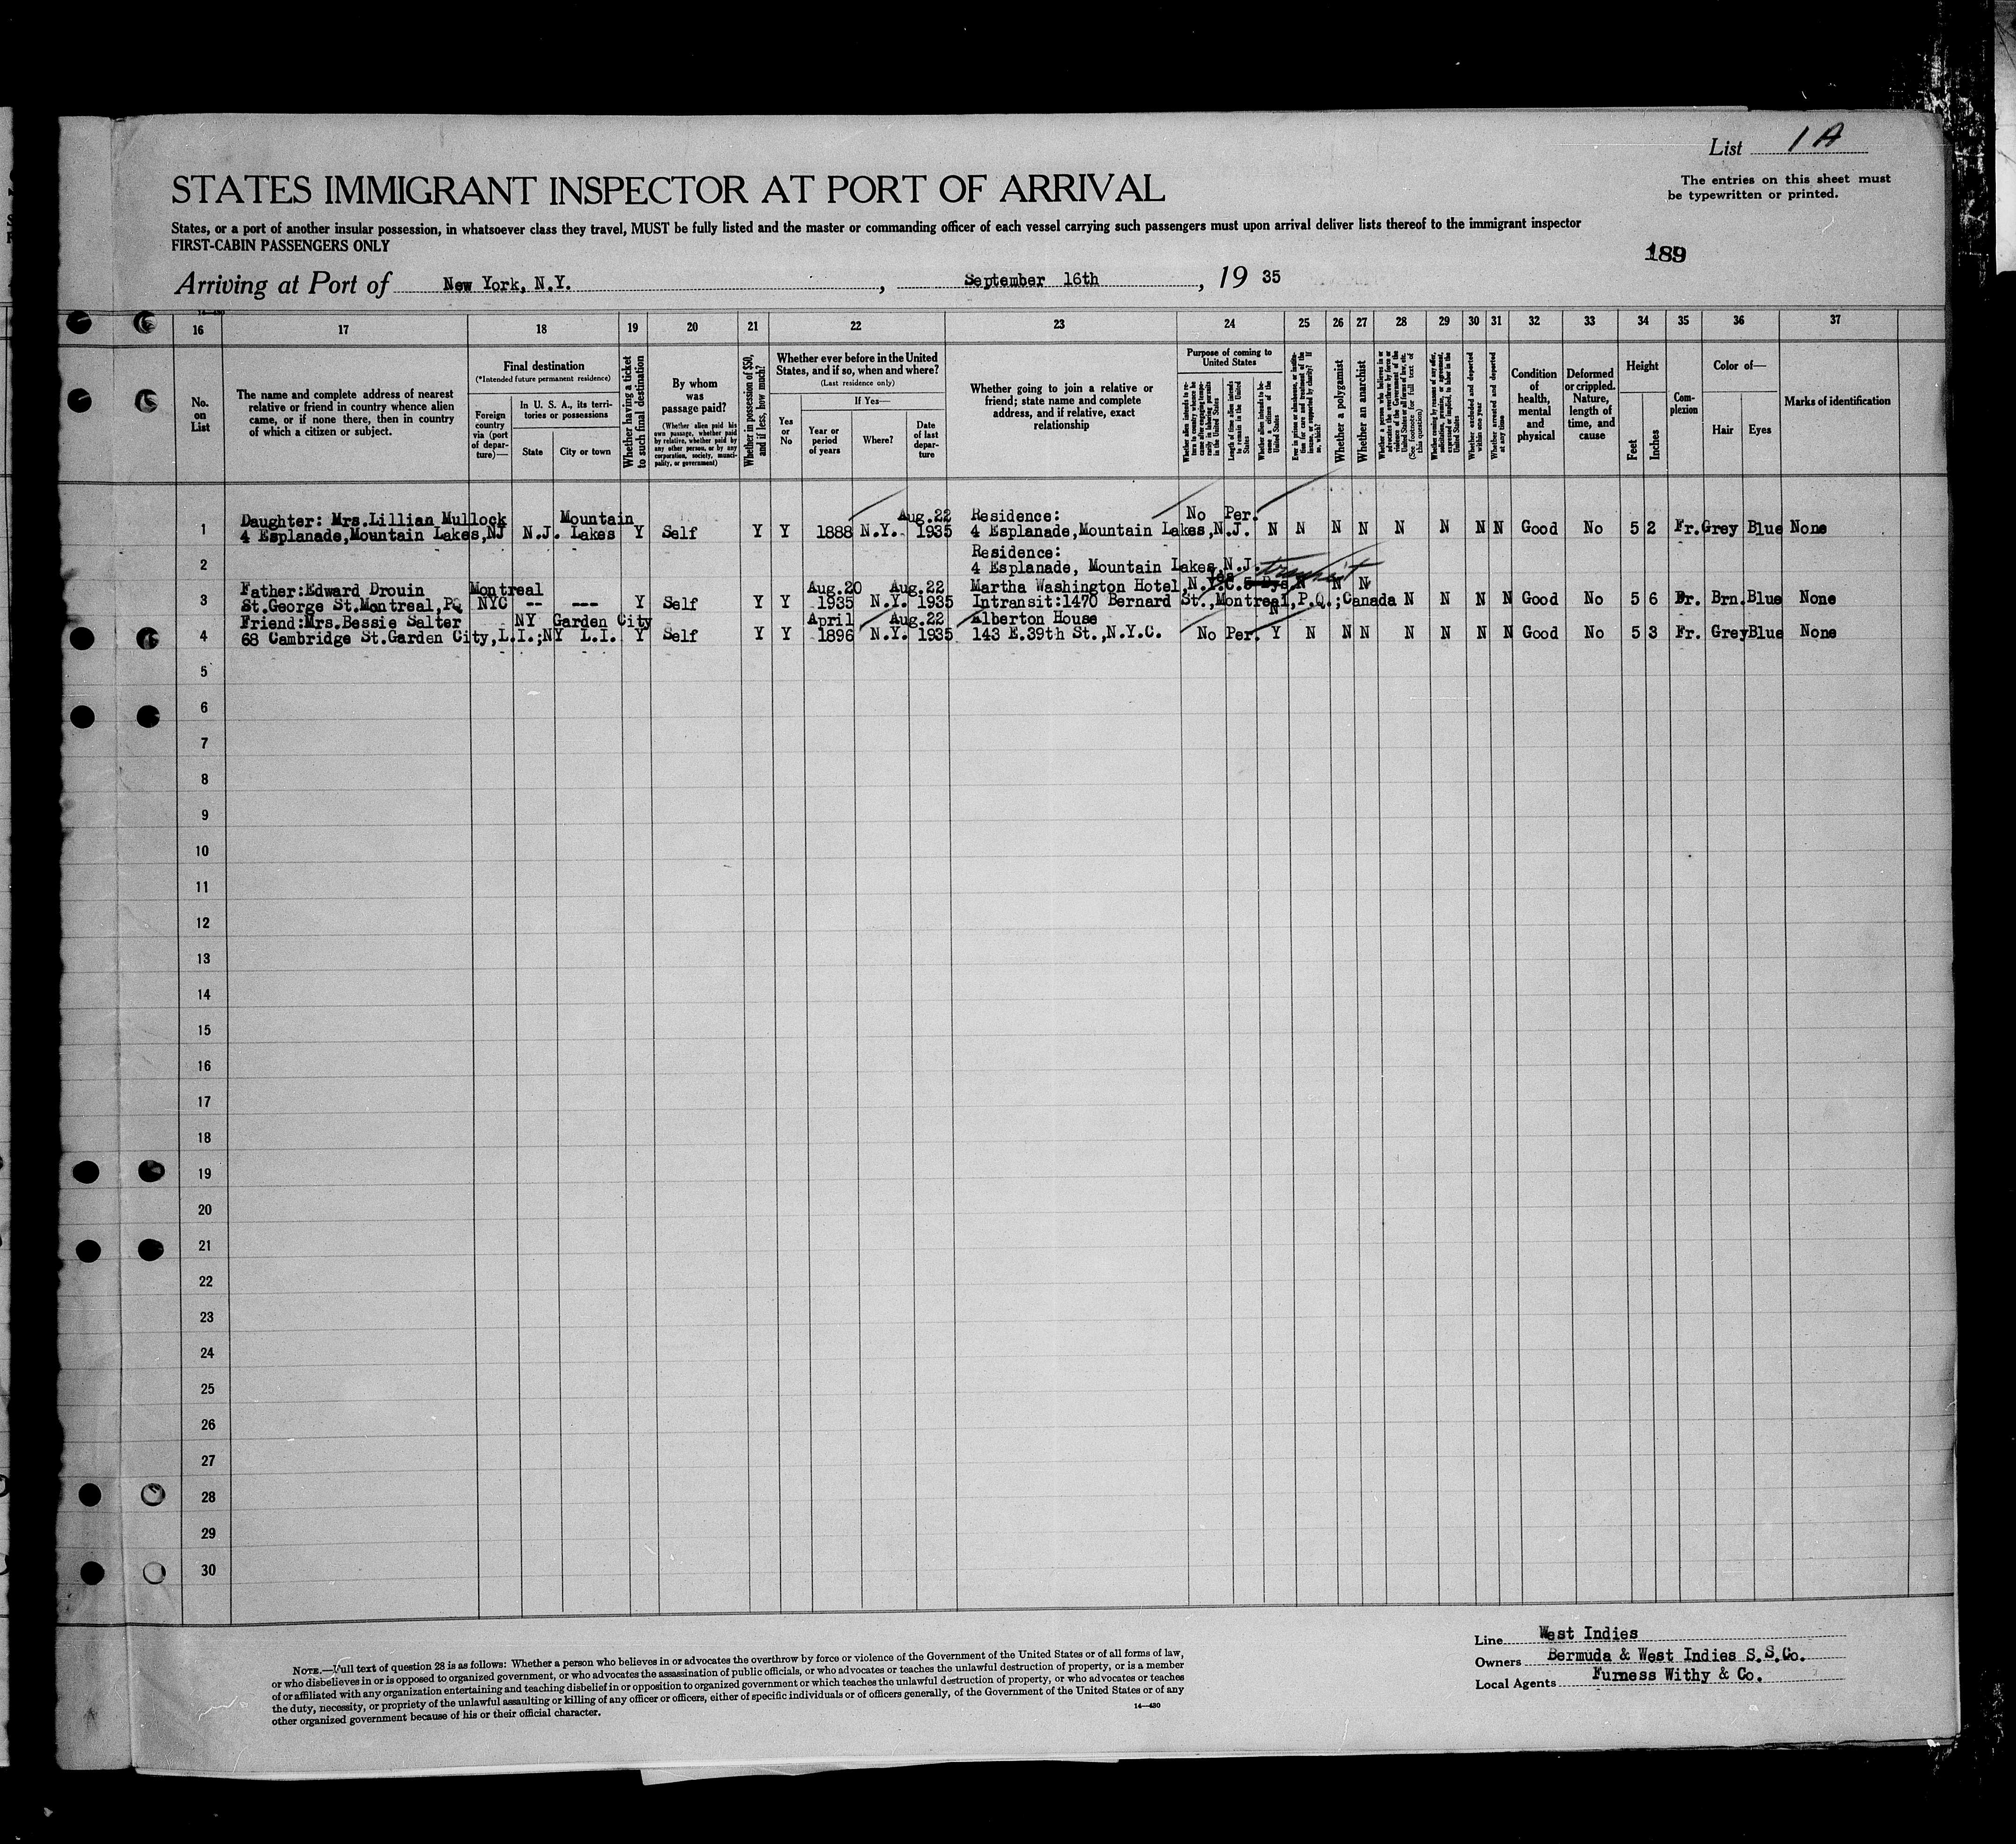 List 1 A
The entries on this sheet must
be typewritten or printed.
STATES IMMIGRANT INSPECTOR AT PORT OF ARRIVAL
States, or a port of another insular possession, in whatsoever class they travel, MUST be fully listed and the master or commanding officer of each vessel carrying such passengers must upon arrival deliver lists thereof to the immigrant inspector
FIRST-CABIN PASSENGERS ONLY
189
Arriving at Port of New York, N.Y. , September 16th , 19 35
14—430
16 17 18 19 20 21 22 23 24 25 26 27 28 29 30 31 32 33 34 35 36 37
No.
on
List
The name and complete address of nearest
relative or friend in country whence alien
came, or if none there, then in country
of which a citizen or subject.
Final destination
(*Intended future permanent residence)
Foreign
country
via (port
of depar-
ture)—
In U. S. A., its terri-
tories or possessions
State
City or town
Whether having a ticket
to such final destination
By whom
was
passage paid?
(Whether alien paid his
own passage, whether paid
by relative, whether paid by
any other person, or by any
corporation, society, munici-
pality, or government)
Whether in possession of $50,
and if less, how much?
Whether ever before in the United
States, and if so, when and where?
(Last residence only)
Yes
or
No
If Yes—
Year or
period
of years
Where?
Date
of last
depar-
ture
Whether going to join a relative or
friend; state name and complete
address, and if relative, exact
relationship
Purpose of coming to
United States
Length of time alien intends
to remain in the United
States
Whether alien intends to be-
come a citizen of the
United States
Whether a polygamist
Whether an anarchist
(See footnote for full text of
this question)
Whether excluded and deported
within one year
Whether arrested and deported
at any time
Condition
of
health,
mental
and
physical
Deformed
or crippled.
Nature,
length of
time, and
cause
Height
Feet
Inches
Com-
plexion
Color of—
Hair
Eyes
Marks of identification
Daughter: Mrs.Lillian Mullock Mountain Aug.22 Residence: No Per.
1 4 Esplanade,Mountain Lakes,NJ N.J. Lakes Y Self Y Y 1888 N.Y. 1935 4 Esplanade,Mountain Lakes,N.J. N N N N N N N N Good No 5 2 Fr. Grey Blue None
Residence:
2 4 Esplanade, Mountain Lakes,N.J. transit
Father:Edward Drouin Montreal Aug.20 Aug.22 Martha Washington Hotel,N.Y.C. Yes 5 Dys N N N
3 St.George St.Montreal,PQ NYC -- --- Y Self Y Y 1935 N.Y. 1935 Intransit:1470 Bernard St.,Montreal,P.Q.;Canada N N N N Good No 5 6 Fr. Brn. Blue None
Friend:Mrs.Bessie Salter NY Garden City April Aug.22 Alberton House N
4 68 Cambridge St.Garden City,L.I.;NY L.I. Y Self Y Y 1896 N.Y. 1935 143 E.39th St.,N.Y.C. No Per. Y N N N N N N N Good No 5 3 Fr. Grey Blue None
5
6
7
8
9
10
11
12
13
14
15
16
17
18
19
20
21
22
23
24
25
26
27
28
29
30
NOTE.—Full text of question 28 is as follows: Whether a person who believes in or advocates the overthrow by force or violence of the Government of the United States or of all forms of law,
or who disbelieves in or is opposed to organized government, or who advocates the assassination of public officials, or who advocates or teaches the unlawful destruction of property, or is a member
of or affiliated with any organization entertaining and teaching disbelief in or opposition to organized government or which teaches the unlawful destruction of property, or who advocates or teaches
the duty, necessity, or propriety of the unlawful assaulting or killing of any officer or officers, either of specific individuals or of officers generally, of the Government of the United States or of any
other organized government because of his or their official character.
14—430
Line West Indies
Owners Bermuda & West Indies S.S.Co.
Local Agents Furness Withy & Co.